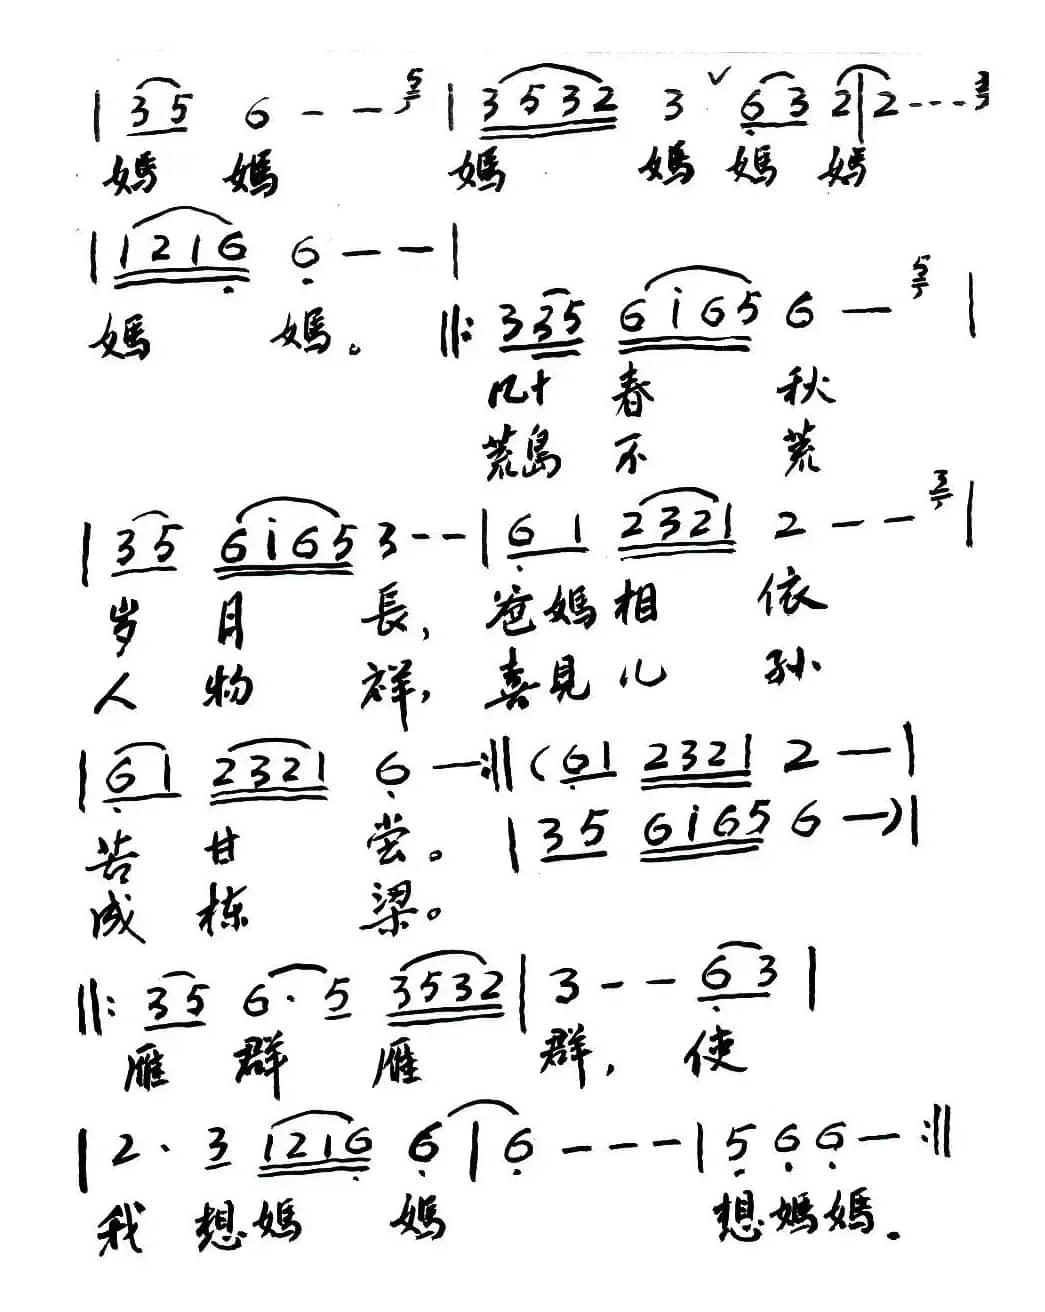 | 35 6 - - 5 | 3532 3 ∨ 63 2 | 2 - - - 3
媽 媽 媽 媽 媽 媽
| 1216 6 - - |
媽 媽。
‖: 335 6i65 6 — 5 |
几十 春 秋
荒島 不 荒
| 35 6i65 3 - - | 61 2321 2 - - 3 |
岁 月 長, 爸媽 相 依
人 物 祥, 喜見 儿 孙
| 61 2321 6 — :‖ ( 61 2321 2 — |
苦 甘 尝。
成 栋 梁。
| 35 6i65 6 — ) |
‖: 35 6· 5 3532 | 3 - - 63 |
雁 群 雁 群, 使
| 2 · 3 1216 6 | 6 - - - | 5 6 6 — :‖
我 想 媽 媽 想 媽 媽.